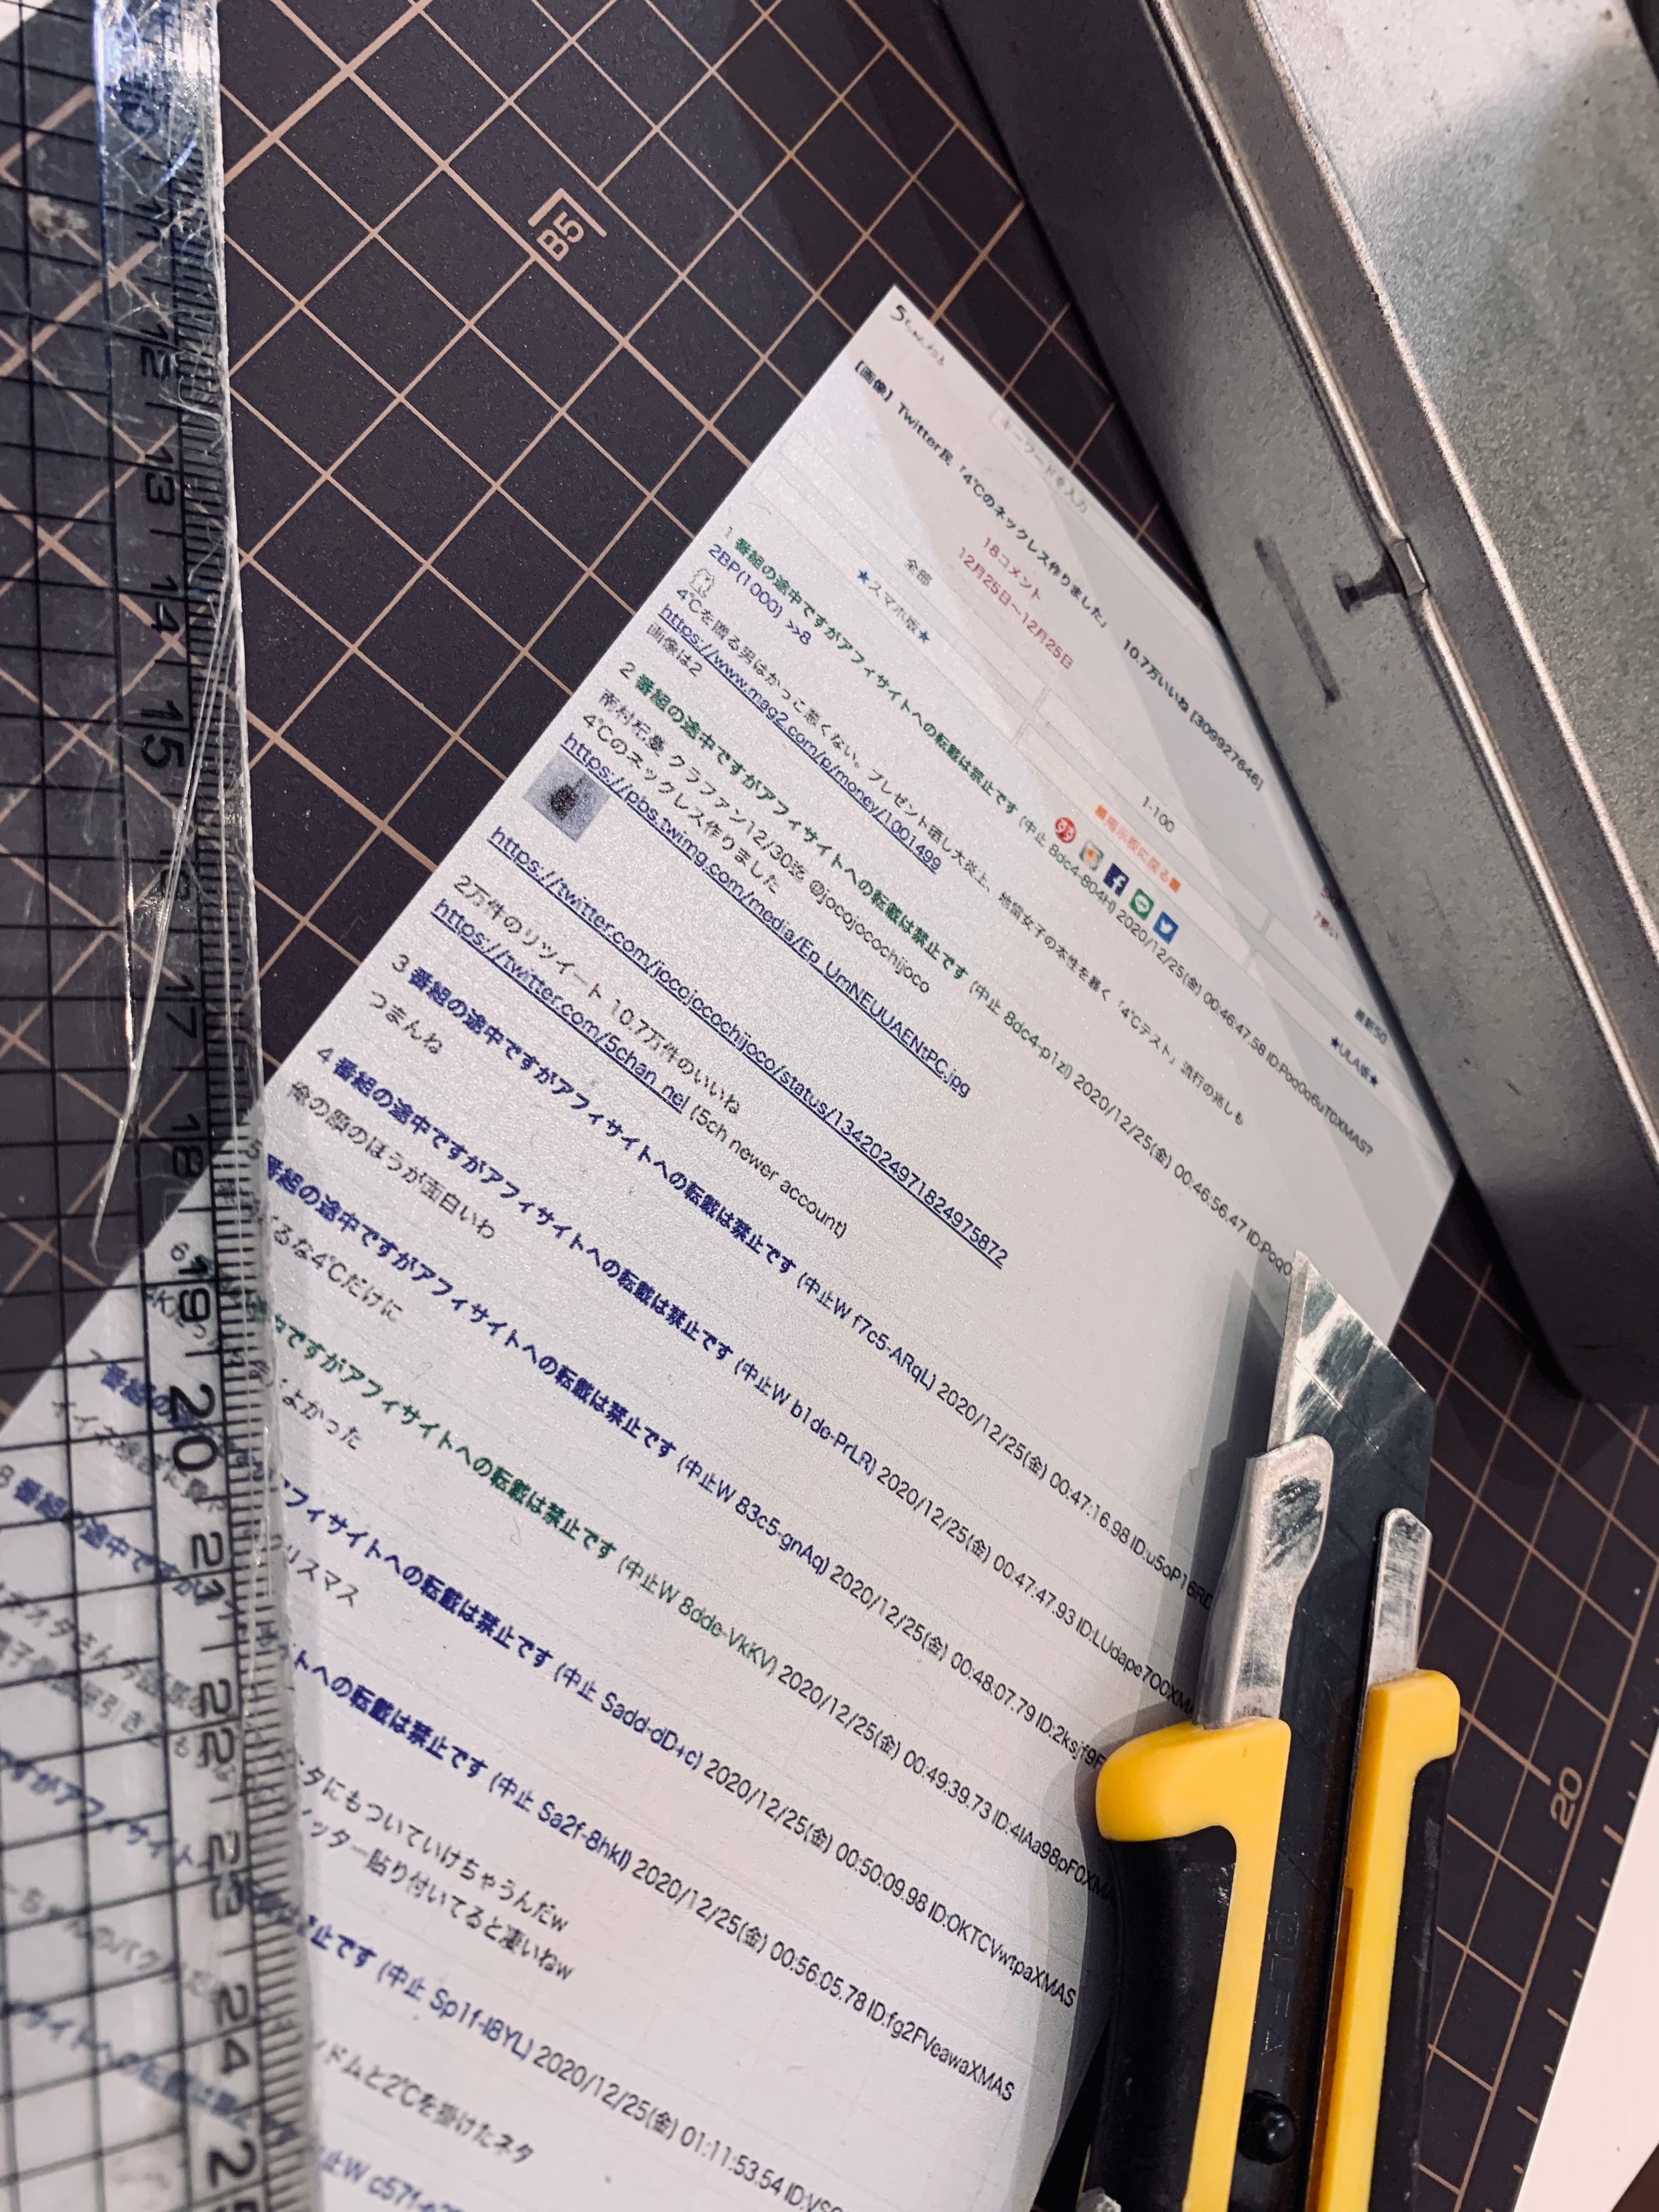 B5
キーワードを入力
【画像】 Twitter民「4℃のネックレス作りました」 10.7万いいね [309927646]
18コメント
12月25日～12月25日
全部
1-100
最新50
★スマホ版★
■掲示板に戻る■
★ULA版★
1 番組の途中ですがアフィサイトへの転載は禁止です (中止 8dc4-804H) 2020/12/25(金) 00:46:47.58 ID:Poq0q6uT0XMAS?
2BP(1000) >>8
4℃を贈る男はかっこ悪くない。プレゼント晒し大炎上、地雷女子の本性を暴く「4℃テスト」流行の兆しも
https://www.mag2.com/p/money/1001499
画像は2
2 番組の途中ですがアフィサイトへの転載は禁止です (中止 8dc4-p1zl) 2020/12/25(金) 00:46:56.47 ID:Poq0
クラファン12/30迄 @jocojocochijoco
4℃のネックレス作りました
https://pbs.twimg.com/media/Ep_UmNEUUAENtPC.jpg
https://twitter.com/jocojocochijoco/status/1342024971824975872
2万件のリツイート 10.7万件のいいね
https://twitter.com/5chan_nel (5ch newer account)
3 番組の途中ですがアフィサイトへの転載は禁止です (中止W f7c5-ARqL) 2020/12/25(金) 00:47:16.98 ID:u5oP16RD
つまんね
4 番組の途中ですがアフィサイトへの転載は禁止です (中止W b1de-PrLR) 2020/12/25(金) 00:47:47.93 ID:LUdape7O0XMA
俺の顔のほうが面白いわ
5 番組の途中ですがアフィサイトへの転載は禁止です (中止W 83c5-gnAq) 2020/12/25(金) 00:48:07.79 ID:2ksjf9F
るな4℃だけに
6 中ですがアフィサイトへの転載は禁止です (中止W 8dde-VkKV) 2020/12/25(金) 00:49:39.73 ID:4IAa98pF0XMA
よかった
7 番組の アフィサイトへの転載は禁止です (中止 Sadd-dD+c) 2020/12/25(金) 00:50:09.98 ID:OKTCVwtpaXMAS
リスマス
8 番組の途中ですが トへの転載は禁止です (中止 Sa2f-8hkI) 2020/12/25(金) 00:56:05.78 ID:fg2FVeawaXMAS
タにもついていけちゃうんだw
ッター貼り付いてると凄いねw
すがアフィサイト 止です (中止 Sp1f-I8YL) 2020/12/25(金) 01:11:53.54
ドムと2℃を掛けたネタ
止W
12 13 14 15 16 17 18 19 20 21 22 23 24 25
20